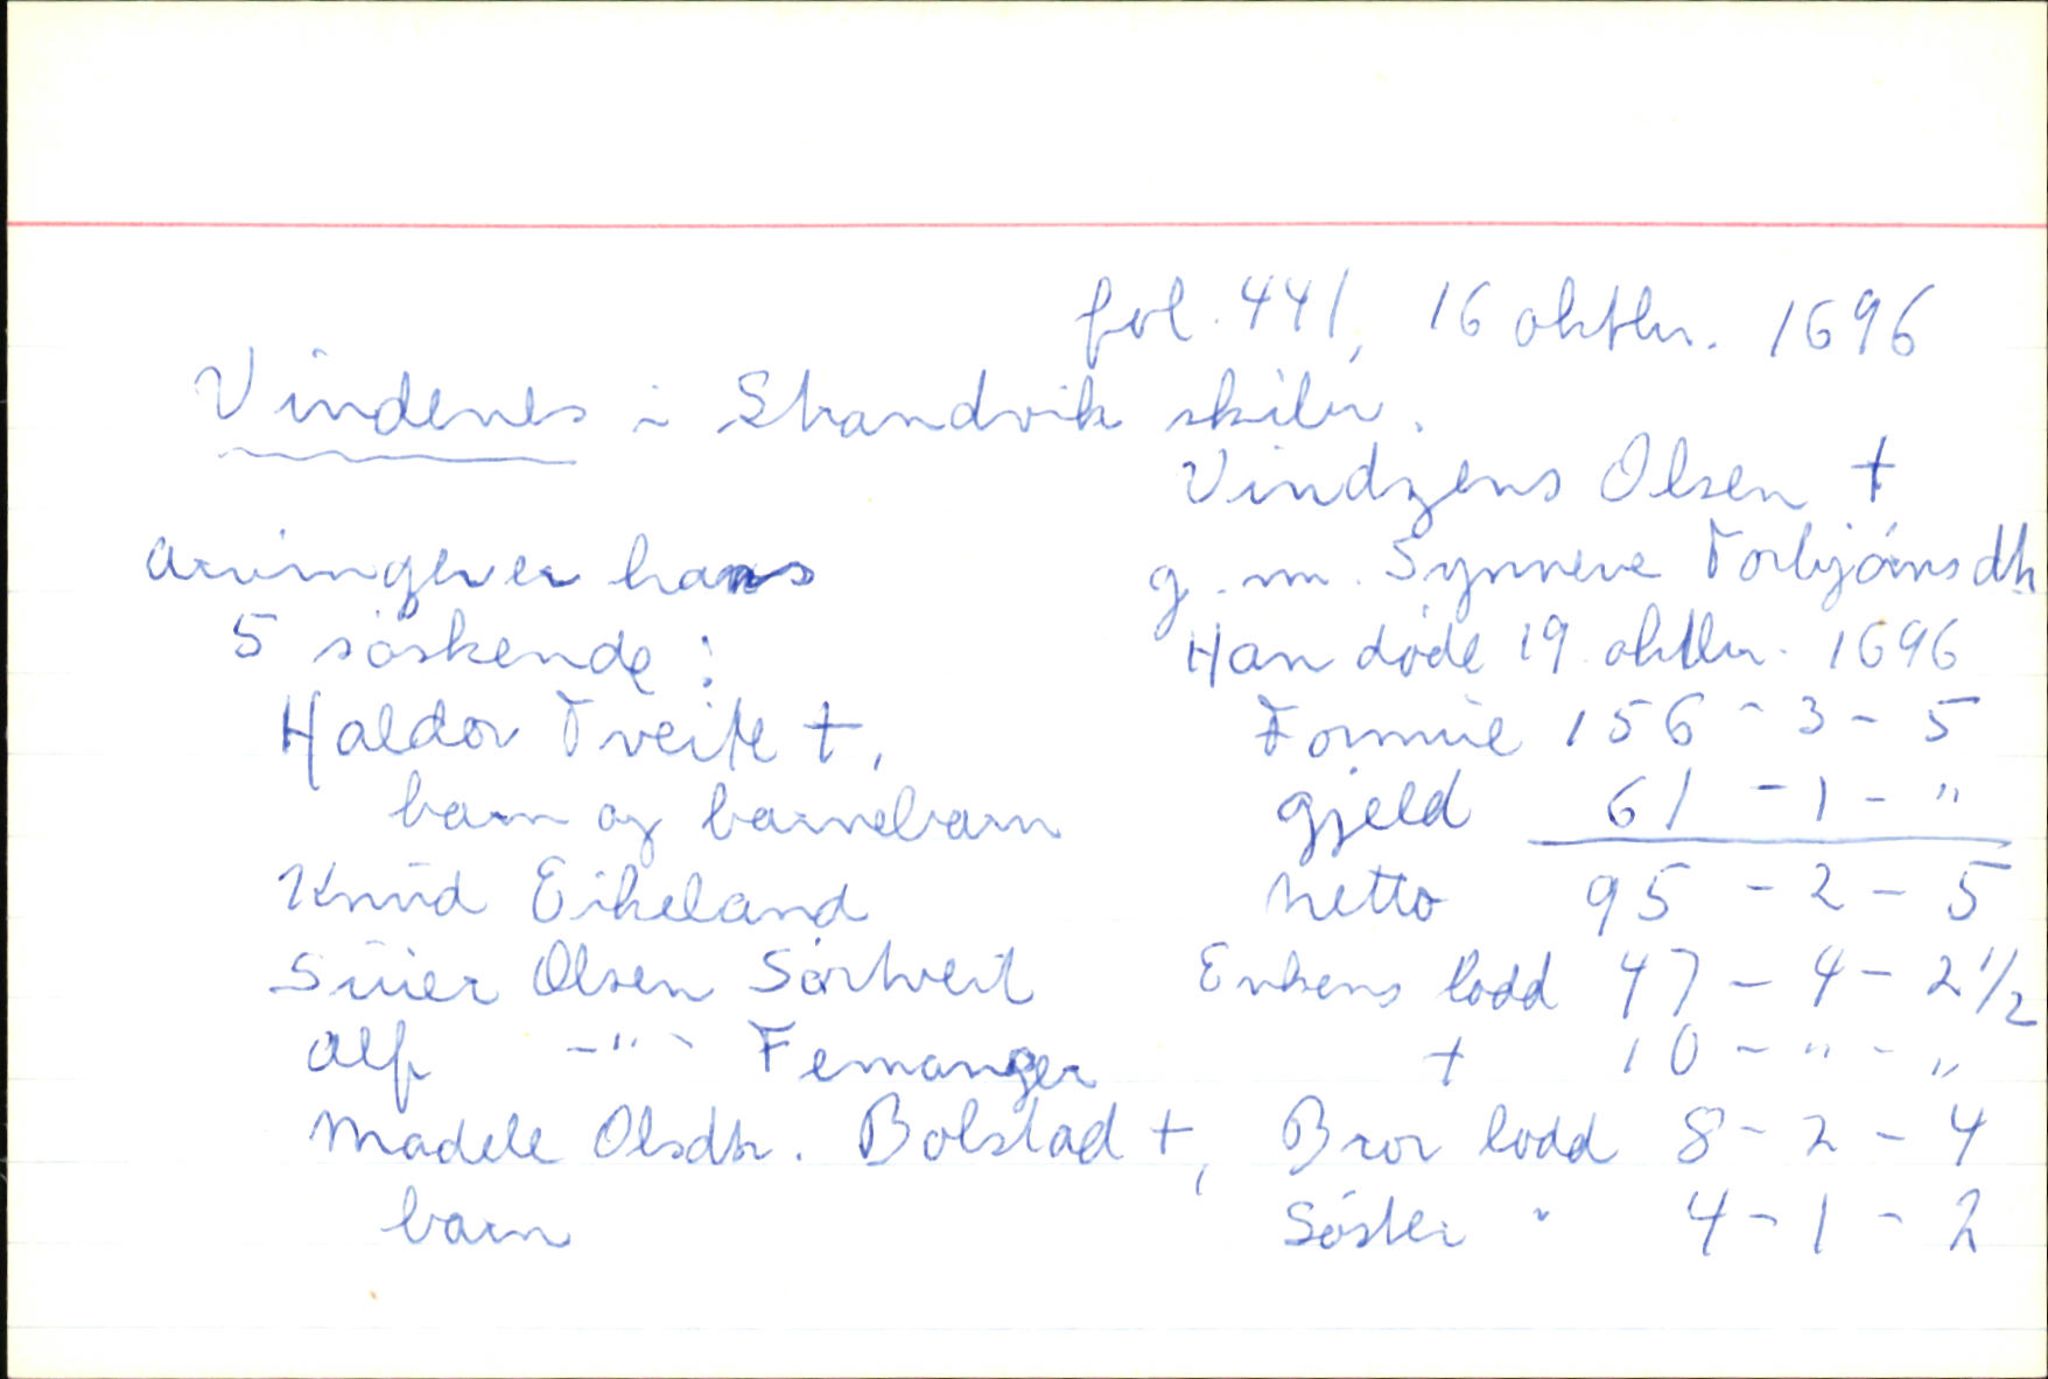 fol. 441, 16 oktbr. 1696
Vindenes i Strandvik skibr.
Vindzens Olsen †
g. m. Synneve Torbjörnsdtr.
Han döde 19. oktbr. 1696
Formue 156 - 3 - 5
gjeld 61 - 1 - "
netto 95 - 2 - 5
Enkens lodd 47 - 4 - 2 1/2
+ 10 - " - "
Bror lodd 8 - 2 - 4
Söster " 4 - 1 - 2
Arvinger er hans
5 söskende:
Haldor Tveite †,
barn og barnebarn
Knud Eikeland
Siuer Olsen Sörtveit
Alf - " - Femanger
Madele Olsdtr. Bolstad †,
barn